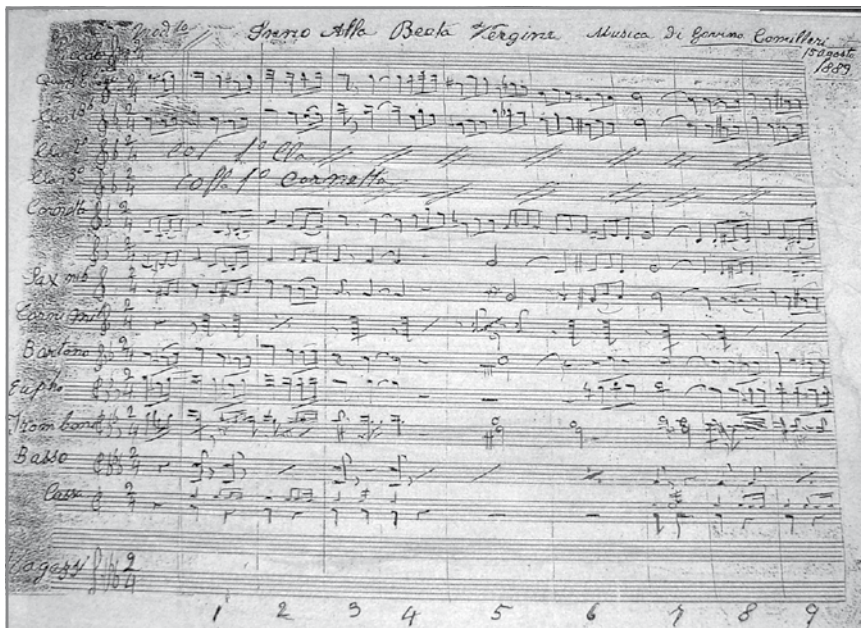 Mod.to Inno Alla Beata Vergine Musica Di Gavino Camilleri
15 agosto
1889
Piccolo
Quartino
Clar 1º
Clar 2º col 1º Cla
Clar 3º colla 1º Cornetta
Cornetta
Sax mib
Corni mib
Baritono
Eupho
Tromboni
Basso
Cassa
Ragazzi
1 2 3 4 5 6 7 8 9